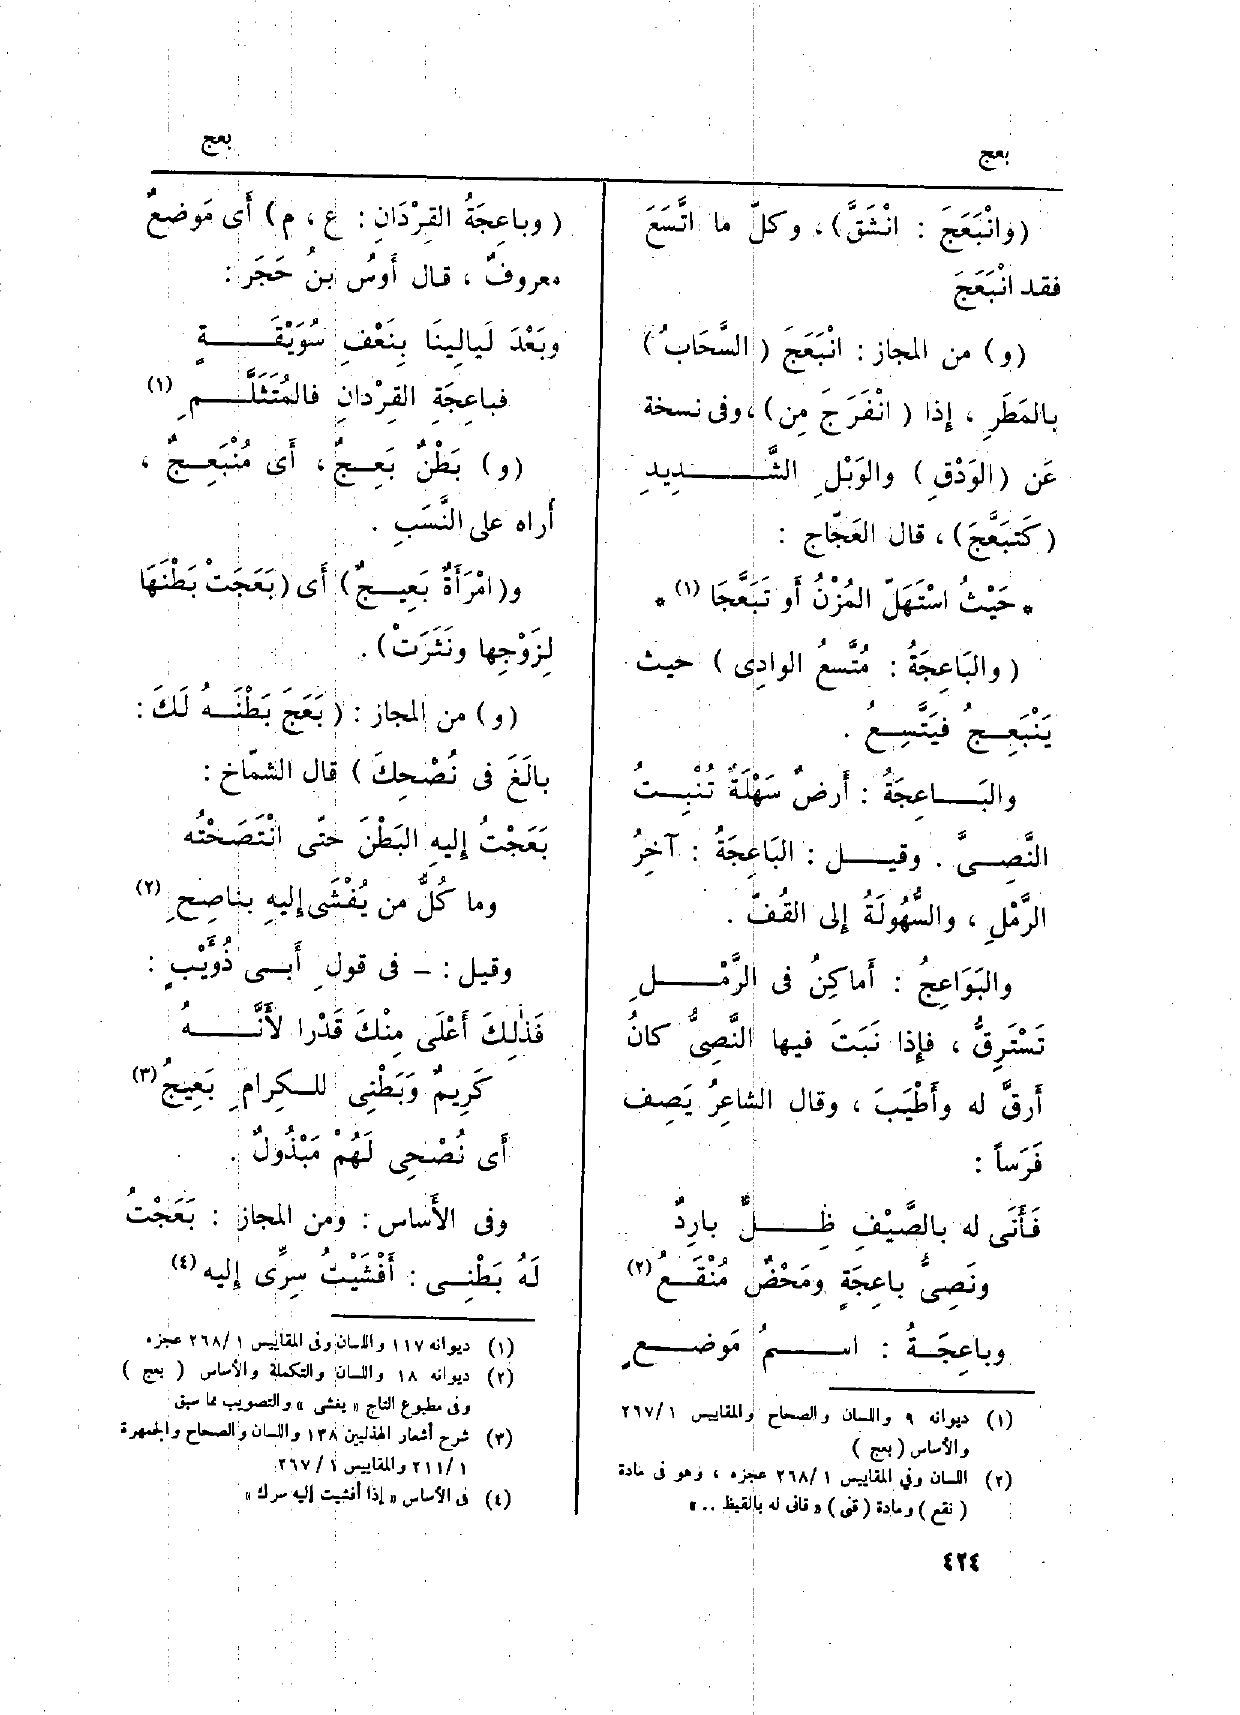 بعج
بعج
(وانْبَعَجَ : انْشَقَّ)، وكلّ ما اتَّسَعَ
فقد انْبَعَجَ
(و) من المجاز : انْبَعَجَ (السَّحَابُ)
بالمَطَرِ ، إذا ( انْفَرَجَ مِن)، وفى نسخة
عَن (الوَدْقِ) والوَبْلِ الشَّـــدِيدِ
(كَتبَعَّجَ)، قال العَجّاج :
* حَيْثُ اسْتَهَلّ المُزْنُ أو تَبَعَّجَا (١) *
( والبَاعِجَةُ : مُتَّسعُ الوادِى ) حيث
يَنْبَعِـجُ فيَتَّسِـعُ .
والبَـــاعِجَةُ : أَرضٌ سَهْلَةٌ تُنْبِـتُ
النَّصِـىَّ . وقيـــل : البَاعِجَةُ : آخِرُ
الرَّمْلِ ، والسُّهُولَةُ إلى القُفّ .
والبَوَاعِجُ : أَماكِنُ فى الرَّمْـــلِ
تَسْتَرِقُّ ، فإذا نَبَتَ فيها النَّصِىُّ كانُ
أَرقَّ له وأَطْيَبَ ، وقال الشاعِرُ يَصِف
فَرَساً :
فَأَنَى له بالصَّيْفِ ظِـــلٌّ بارِدٌ
ونَصِىُّ باعِجَةٍ ومَحْضٌ مُنْقَـعُ (٢)
وباعِجَـةُ : اســـمُ مَوضـــعٍ
(١) ديوانه ٩ واللسان والصحاح والمقاييس ١ /٢٦٧
والأساس ( بعج )
(٢) اللسان وفي المقاييس ١ /٢٦٨ عجزه ، وهو فى مادة
( نقع ) ومادة ( قنى ) « قانى له بالقيظ .. »
( وباعِجَةُ القِرْدَانِ : ع ، م ) أَى مَوضعٌ
معروفٌ ، قال أَوسُ بنُ حَجَر :
وبَعْدَ لَيالِينَا بِنَعْفِ سُوَيْقَـــةٍ
فباعِجَةِ القِرْدانِ فالمُتَثَلَّـــمِ (١)
(و) بَطْنٌ بَعِـجٌ ، أَى مُنْبَعِـجٌ ،
أراه على النَّسَبِ .
و(امْرَأَةٌ بَعِيـجٌ) أَى (بَعَجَتْ بَطْنَهَا
لِزَوْجِها ونَثَرَتْ) .
(و) من المجاز : ( بَعَجَ بَطْنَـهُ لَكَ :
بالَغَ فى نُصْحِكَ ) قال الشمّاخ :
بَعَجْتُ إليهِ البَطْنَ حتّى انْتَصَحْتُه
وما كُلُّ من يُفْشَى إليهِ بنَاصِحِ (٢)
وقيل : – فى قولِ أَبـى ذُؤَيْبٍ :
فَذٰلِكَ أَعْلَى مِنْكَ قَدْرا لأَنَّـــهُ
كَرِيمٌ وَبَطْنِى للـكِرامِ بَعِيجُ (٣)
أَى نُصْحِى لَهُمْ مَبْذُولٌ .
وفى الأَساس : ومن المجاز : بَعَجْتُ
لَهُ بَطْنِـى : أَفْشَيْتُ سِرِّى إليه (٤)
(١) ديوانه ١١٧ واللسان وفى المقاييس ١ /٢٦٨ عجزه
(٢) ديوانه ١٨ واللسان والتكملة والأساس ( بعج )
وفى مطبوع التاج « يغشى » والتصويب مما سبق
(٣) شرح أشعار الهذليين ١٣٨ واللسان والصحاح والجمهرة
١ /٢١١ والمقاييس ١ /٢٦٧
(٤) فى الأساس « إذا أفشيت إليه سرك »
٤٢٤